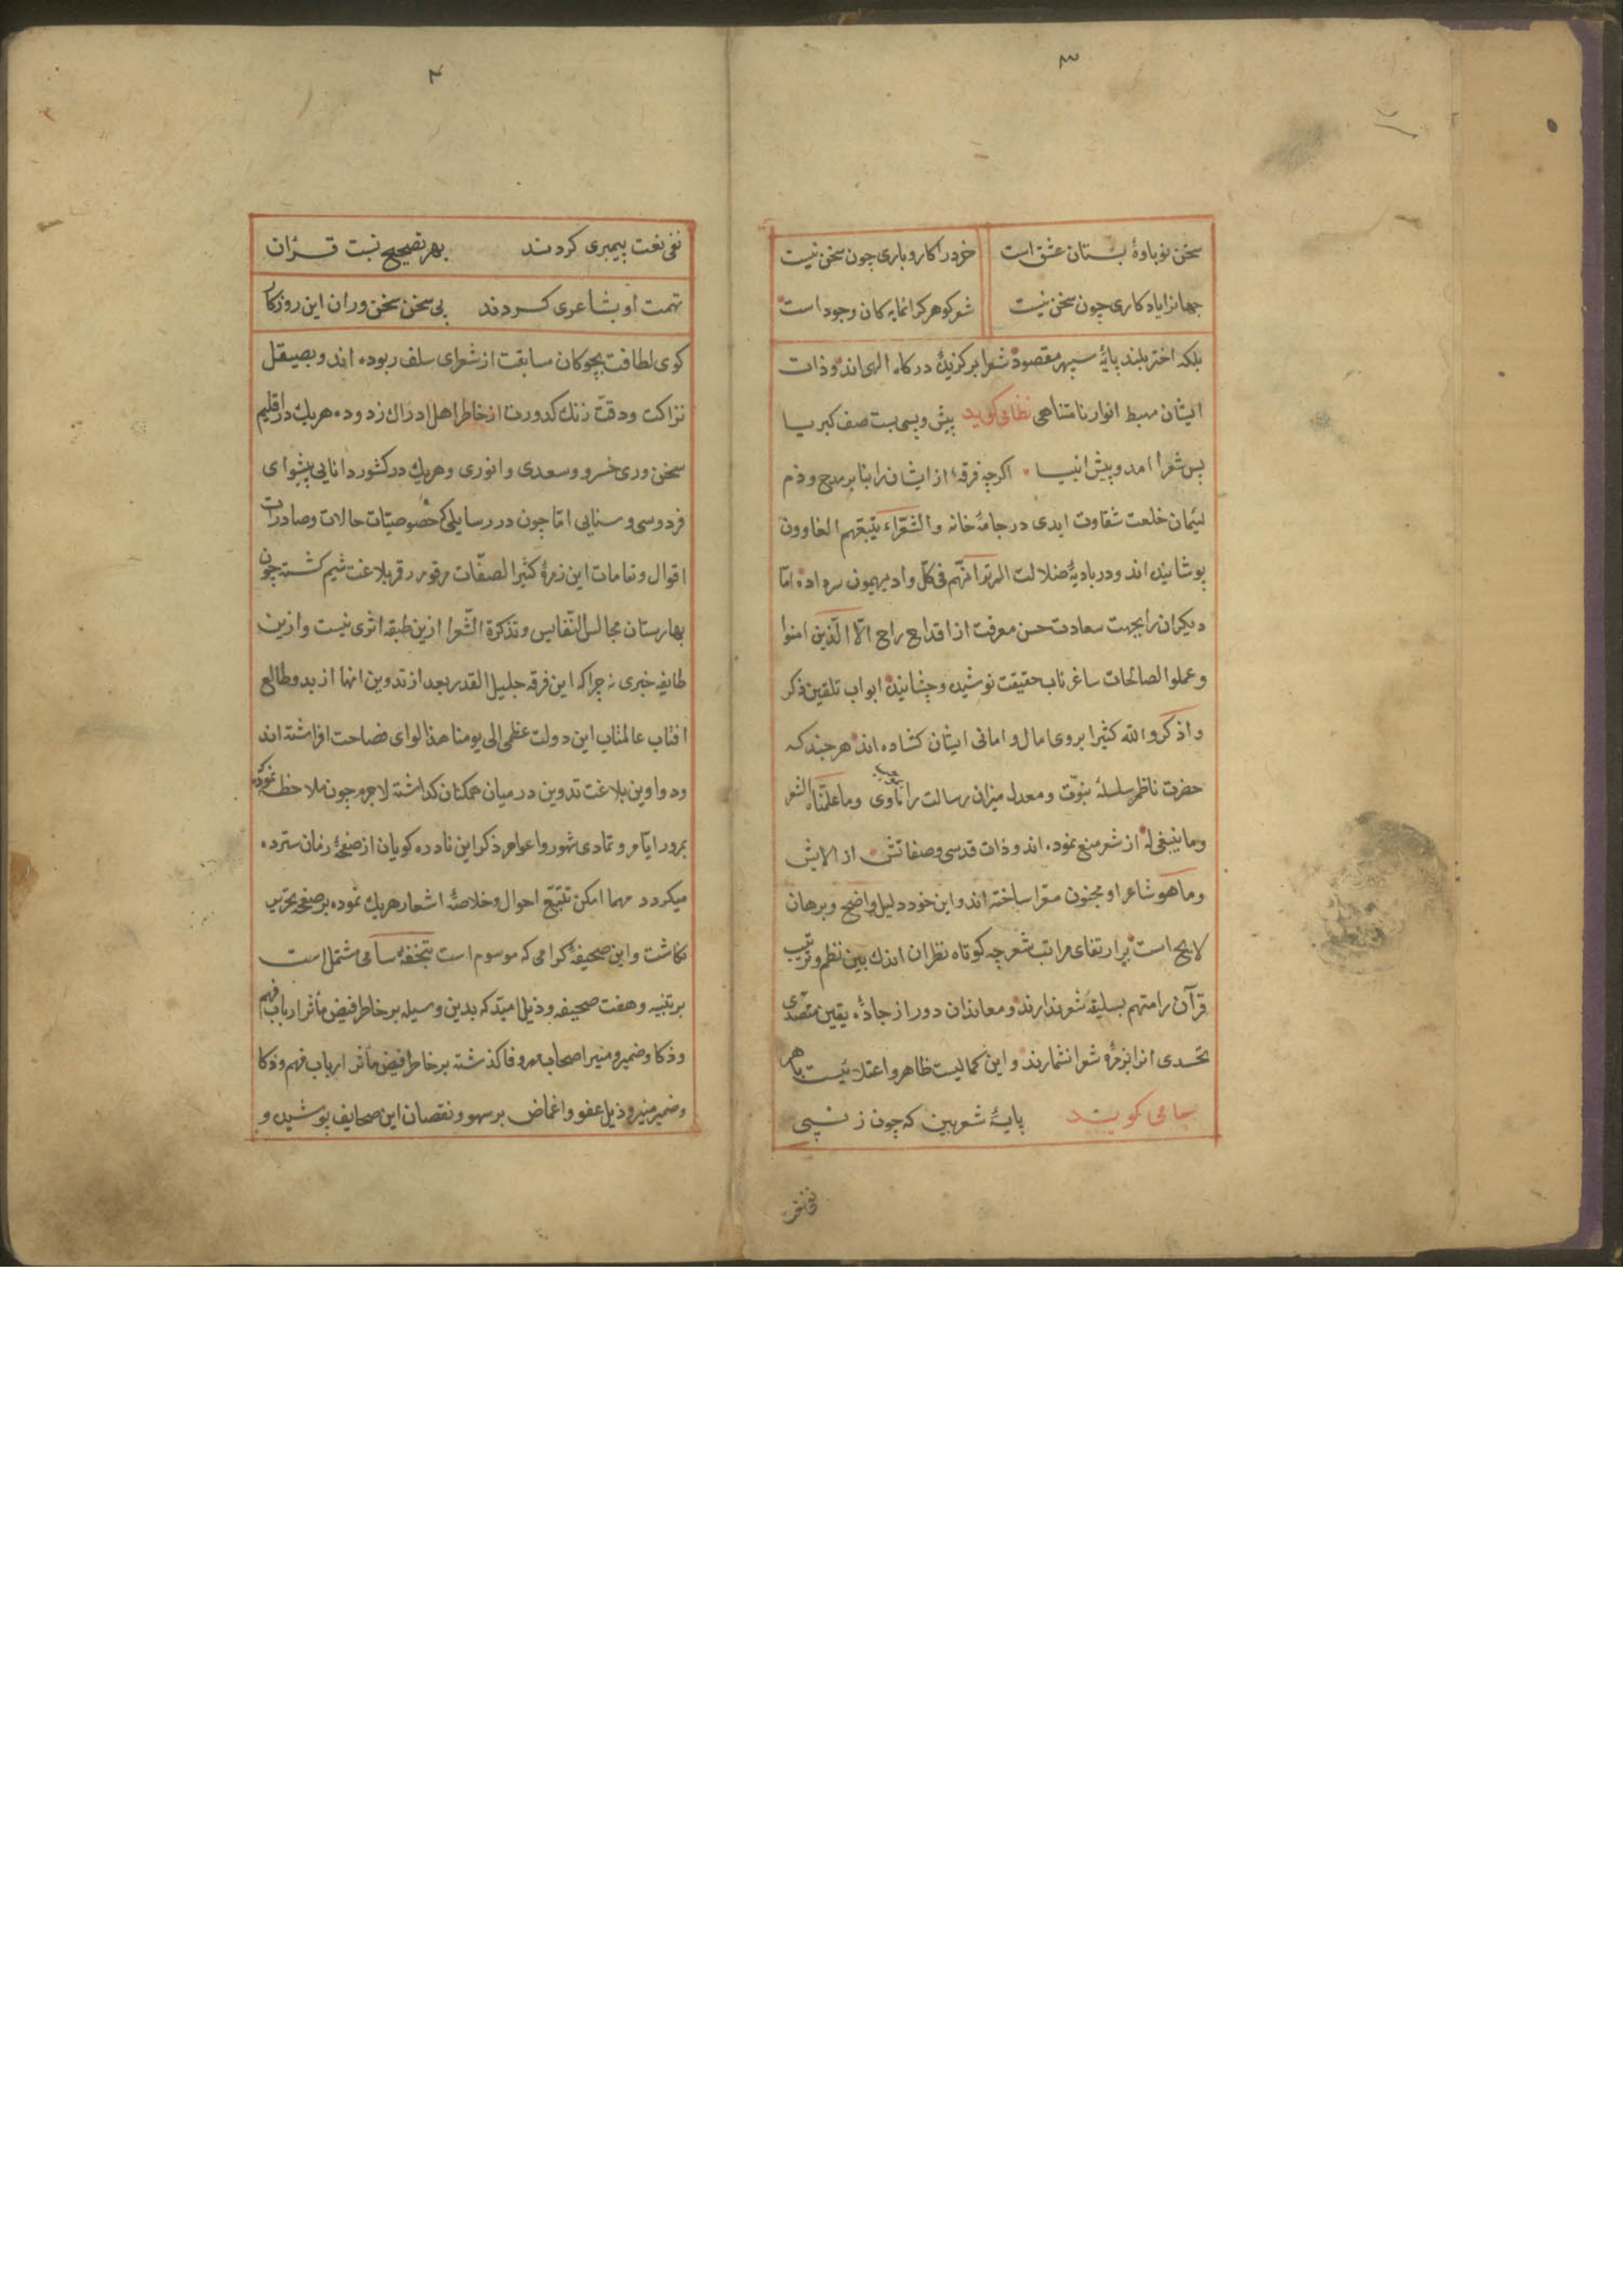 ۳
سخن نوباوهٔ بستان عشق است خرد را کار و باری چون سخن نیست
جهانرا یادکاری چون سخن نیست شعر کوهر کرانمایه کان وجود است
بلکه اختر بلند پایهٔ سپهر مقصود شعرا برکزیدهٔ درکاه الهی اند و ذات
ایشان مهبط انوار نامتناهی نظامی کوید پیش و پسی بست صف کبریا
پس شعرا امد و پیش انبیا اکرچه فرقهٔ از ایشان را بنا بر مدح و ذم
لئیمان خلعت شقاوت ابدی در جامهٔ خانه والشعراء یتبعهم الغاوون
پوشانیده اند و در بادیهٔ ضلالت الم تر انهم فی کل واد یهیمون سر داده اما
دیکران را بجهت سعادت حسن معرفت از اقداح راح الا الذین امنوا
و عملوا الصالحات ساغر ناب حقیقت نوشیده و چشانیده ابواب تلقین ذکر
و اذکروا الله کثیرا بروی امال و امانی ایشان کشاده اند هرچند که
حضرت ناظم سلسلهٔ نبوّت و معدل میزان رسالت را وما علّمناه الشعر
وما ینبغی له از شعر منع نموده اند و ذات قدسی و صفاتش از الایش
وما هو شاعر او مجنون معرا ساخته اند و این خود دلیل واضح و برهان
لایح است بر ارتفای مراتب شعر چه کوتاه نظران اندک بین نظم و ترتیب
قرآن را متهم بسلیقهٔ شعر ندارند و معاندان دور از جادهٔ یقین متصدی
تحدی انرا بزمرهٔ شعرا نشمارند و این کمالیست ظاهر و اعتلائیست باهر
جامی کوید پایهٔ شعر بین که چون ز نبی
نفی نعت
۴
نفی نعت پیمبری کردند بهر تصحیح نسبت قرآن
تهمت او بشاعری کردند بی سخن سخن وران این روزکار
کوی لطافت بچوکان مسابقت از شعرای سلف ربوده اند و بصیقل
نزاکت و دقت زنک کدورت از خاطر اهل ادراک زدوده هریک در اقلیم
سخن وری خسرو و سعدی و انوری و هریک در کشور دانایی پیشوای
فردوسی و سنایی اما چون در رسایلی که خصوصیّات حالات و صادرات
اقوال و مقامات این زمرهٔ کثیر الصفّات مرقوم رقم بلاغت شیم کشته چون
بهارستان مجالس النّفایس و تذکرة الشّعرا ازین طبقه اثری نیست و ازین
طایفه خبری نه چرا که این فرقه جلیل القدر بعد از تدوین انها از بدو طالع
افتاب عالمتاب این دولت عظمی الی یومنا هذا لوای فصاحت افراشته اند
و دواوین بلاغت تدوین در میان همکنان کذاشته لاجرم چون ملاحظه نموده که
بمرور ایّام و تمادی شهور و اعوام ذکر این نادره کویان از صفحهٔ زمان سترده
میکردد مهما امکن تتبّع احوال و خلاصهٔ اشعار هریک نموده بر صفحه تحریر
نکاشت و این صحیفهٔ کرامی که موسوم است بتحفهٔ سامی مشتمل است
بر تنبیه و هفت صحیفه و ذیل امید که بدین وسیله بر خاطر فیض مآثر ارباب فهم
و ذکا و ضمیر منیر اصحاب و فا کذشته بر خاطر فیض مآثر ارباب فهم و ذکا
و ضمیر منیر و ذیل عفو و اغماض بر سهو و نقصان این صحایف پوشیده و